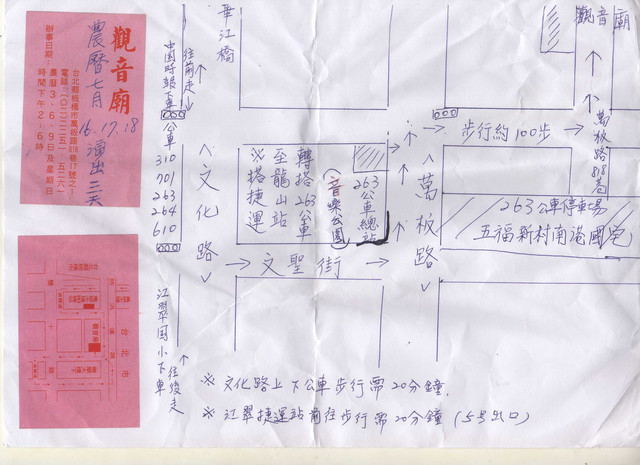 觀音廟
農曆七月
16.17.18
演出三天
台北縣板橋市萬板路818巷17號之1
辦事日期:農曆3、6、9日及星期日
時間下午2:6時
華江橋
往前走
中国時報下車
公車
310
701
263
264
610
江翠国小下車
往後走
文化路
※搭捷運
至龍山站
轉搭263公車
音樂公園
263公車總站
萬板路
文聖街
觀音廟
萬板路818巷
步行約100步
263公車停車場
五福新村南港國宅
台北市
※文化路上下公車步行需20分鐘.
※江翠捷運站前往步行需20分鐘(5号出口)